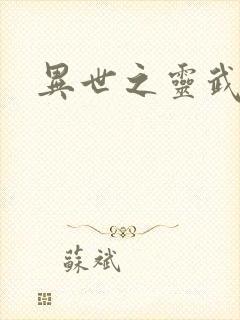 異世之靈武
蘇斌